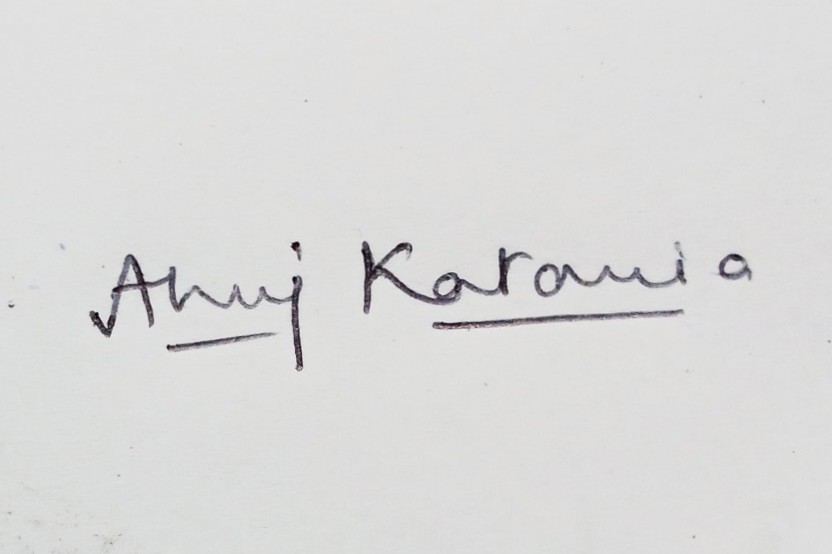 Anuj Katania